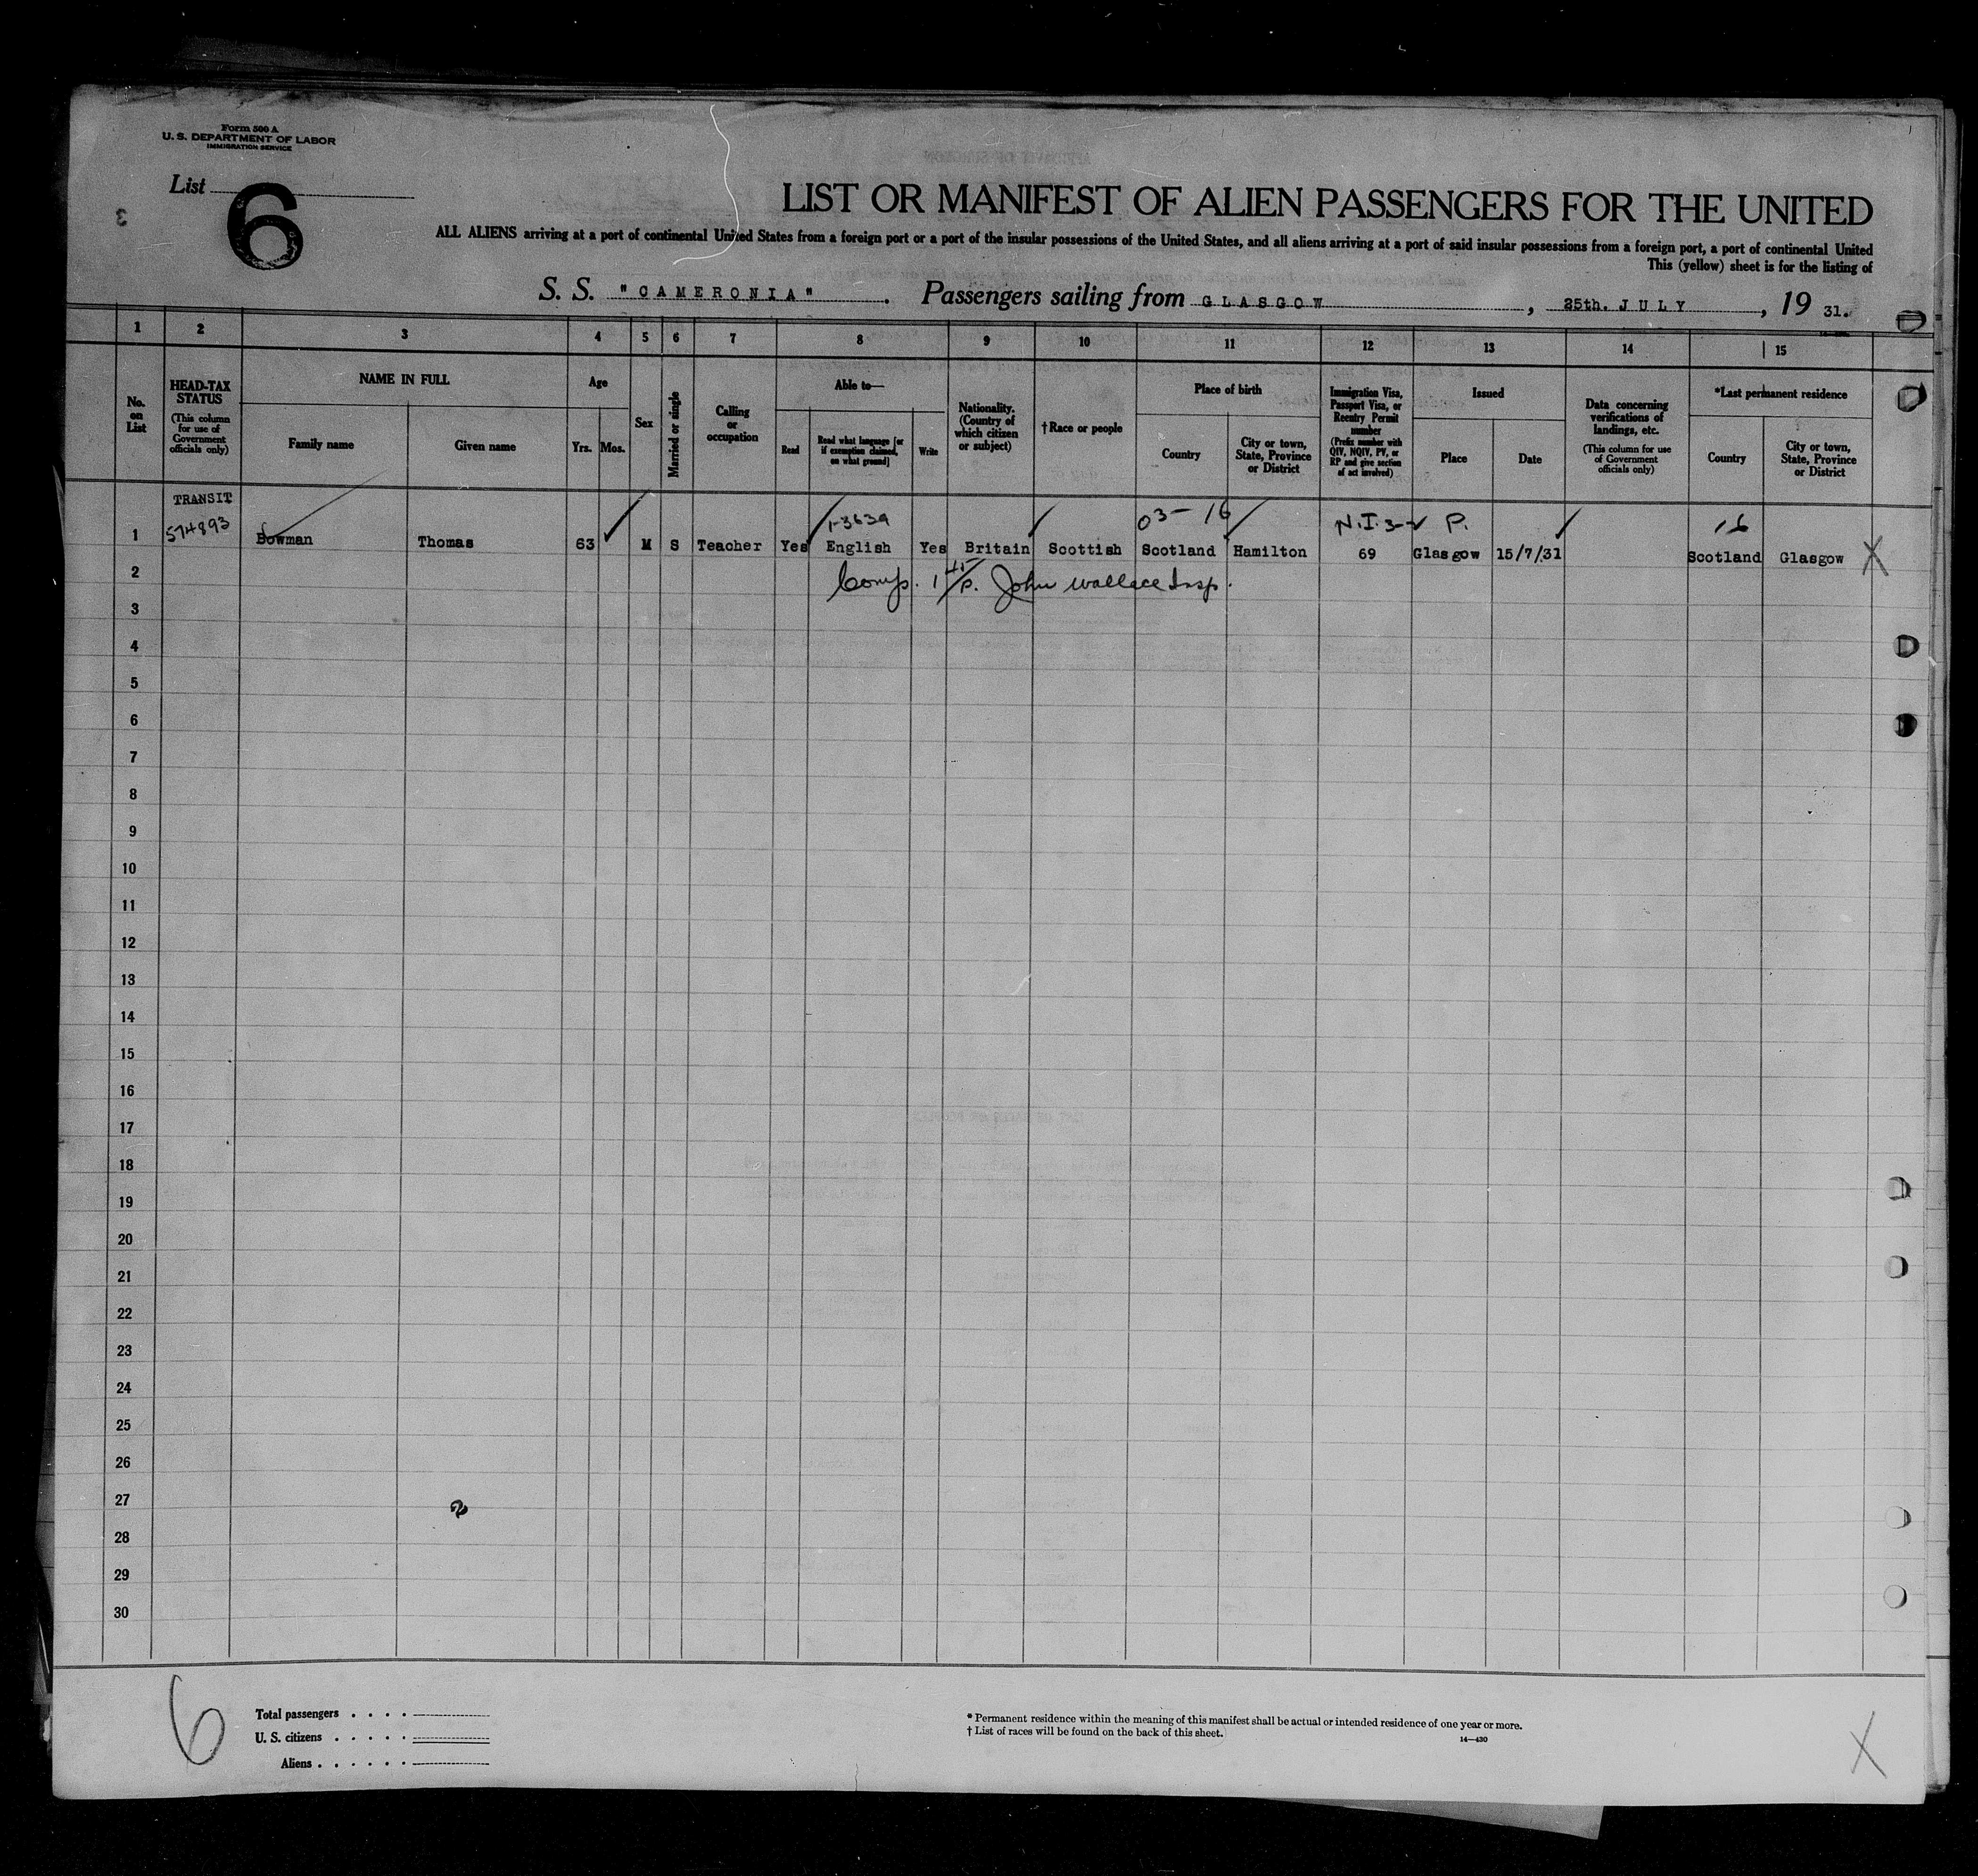 Form 500 A
U. S. DEPARTMENT OF LABOR
IMMIGRATION SERVICE
List
6
3
LIST OR MANIFEST OF ALIEN PASSENGERS FOR THE UNITED
ALL ALIENS arriving at a port of continental United States from a foreign port or a port of the insular possessions of the United States, and all aliens arriving at a port of said insular possessions from a foreign port, a port of continental United
This (yellow) sheet is for the listing of
S. S. "CAMERONIA". Passengers sailing from GLASGOW, 25th. JULY, 19 31.
1 2 3 4 5 6 7 8 9 10 11 12 13 14 15
No. on List
HEAD-TAX STATUS
(This column for use of Government officials only)
NAME IN FULL
Family name
Given name
Age
Yrs. Mos.
Sex
Married or single
Calling or occupation
Able to—
Read
Read what language [or if exemption claimed, on what ground]
Write
Nationality. (Country of which citizen or subject)
†Race or people
Place of birth
Country
City or town, State, Province or District
Immigration Visa, Passport Visa, or Reentry Permit number
(Prefix number with QIV, NQIV, PV, or RP and give section of act involved)
Issued
Place
Date
Data concerning verifications of landings, etc.
(This column for use of Government officials only)
*Last permanent residence
Country
City or town, State, Province or District
TRANSIT
574893
1-3639
03- 16
N.I.3-2 P.
16
1 Bowman Thomas 63 M S Teacher Yes English Yes Britain Scottish Scotland Hamilton 69 Glasgow 15/7/31 Scotland Glasgow X
2 Comp. 1 45/P. John Wallace Insp.
3
4
5
6
7
8
9
10
11
12
13
14
15
16
17
18
19
20
21
22
23
24
25
26
27
28
29
30
6
Total passengers . . . .
U. S. citizens . . . . .
Aliens . . . . . .
* Permanent residence within the meaning of this manifest shall be actual or intended residence of one year or more.
† List of races will be found on the back of this sheet.
14—430
X